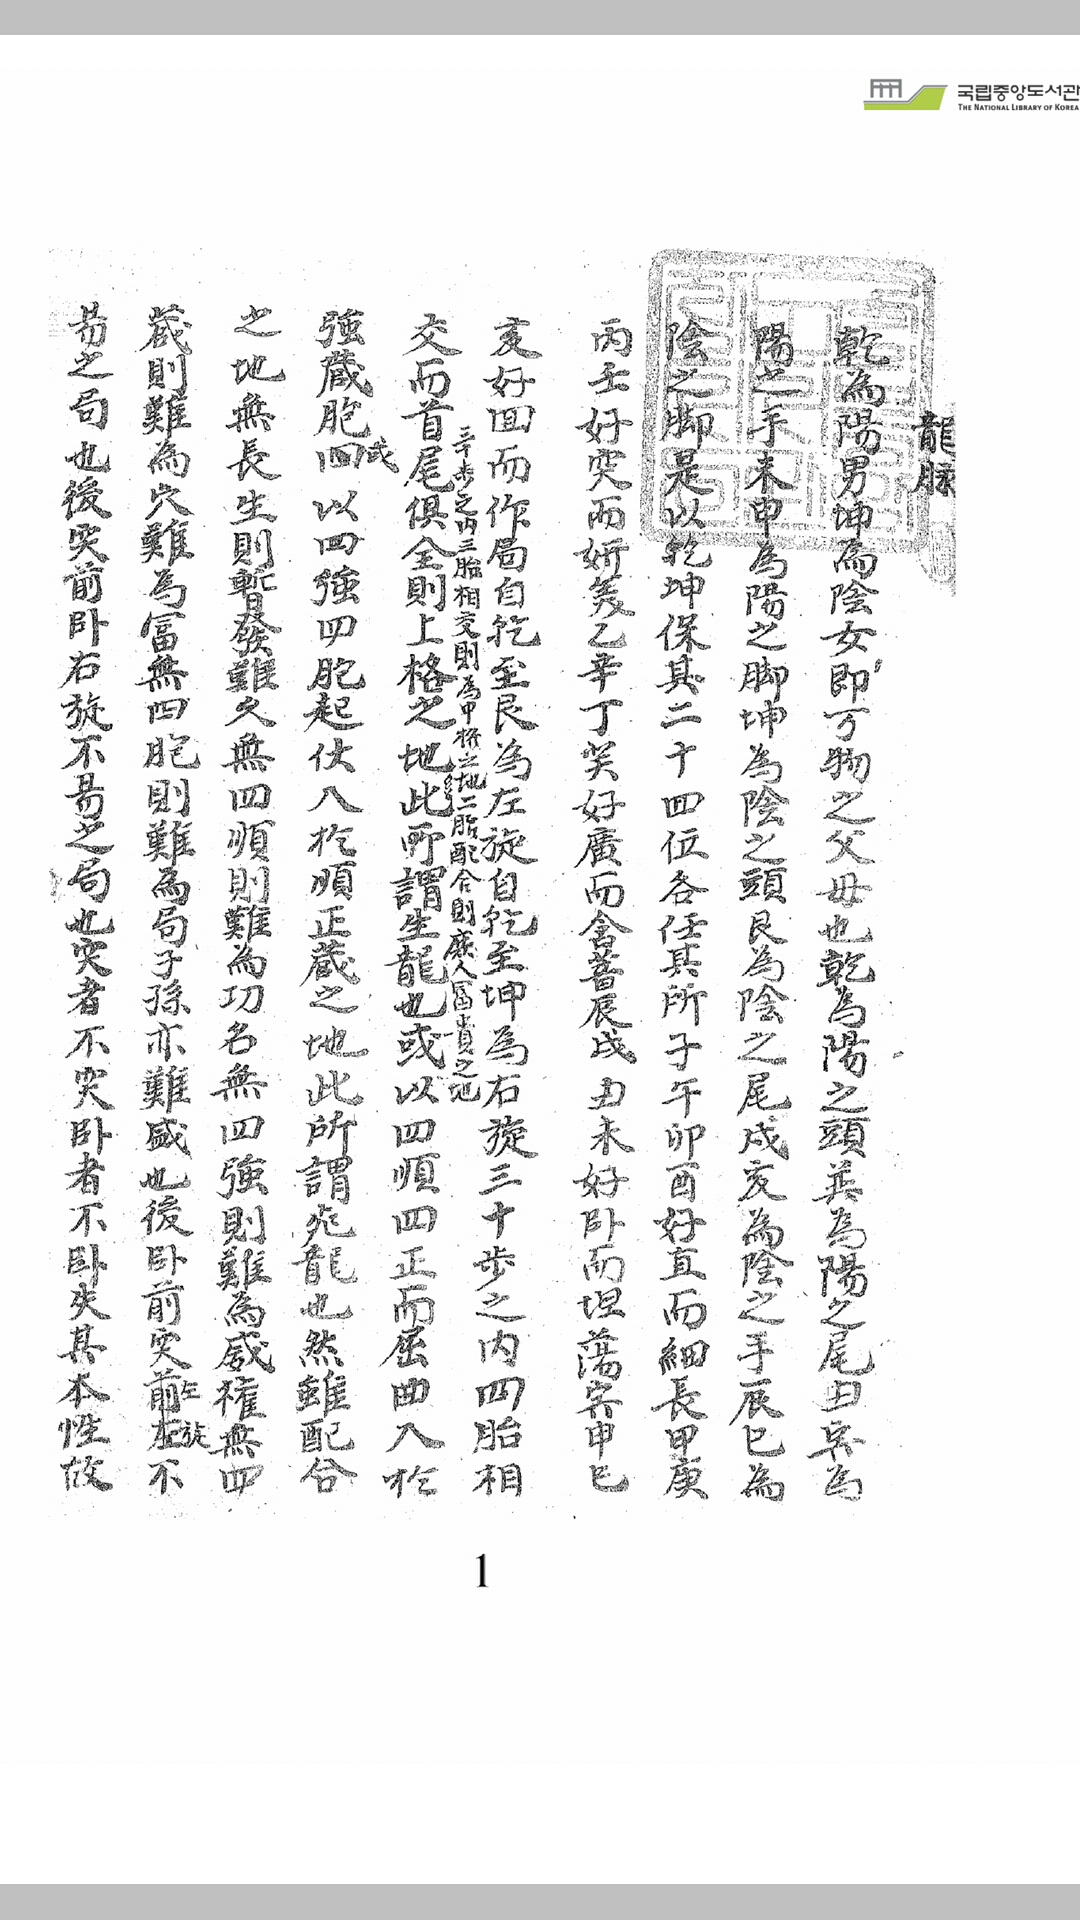 국립중앙도서관
THE NATIONAL LIBRARY OF KOREA
龍脉
乾為陽男坤為陰女即万物之父母也乾為陽之頭巽為陽之尾丑寅為
陽之手未申為陽之脚坤為陰之頭艮為陰之尾戌亥為陰之手辰巳為
陰之脚是以乾坤保其二十四位各任其所子午卯酉好直而細長甲庚
丙壬好突而妍美乙辛丁癸好廣而含蓄辰戌丑未好卧而坦蕩寅申巳
亥好回而作局自乾至艮為左旋自乾至坤為右旋三十步之内四胎相
三十步之内三胎相交則為甲将之地二胎配合則庶人冨貴之地
交而首尾俱全則上格之地此所謂生龍也或以四順四正而屈曲入於
強蔵胞四或以四強四胞起伏入於順正蔵之地此所謂死龍也然雖配合
之地無長生則暫發難久無四順則難為功名無四強則難為威権無四
蔵則難為穴難為冨無四胞則難為局子孫亦難盛也後卧前突左旋不
易之局也後突前卧右旋不易之局也突者不突卧者不卧失其本性故
1